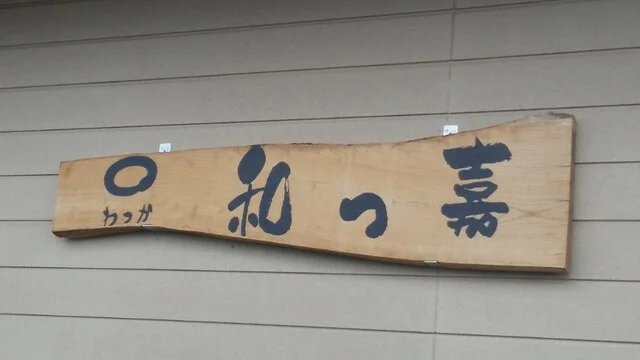 ○
わっか
和っ嘉